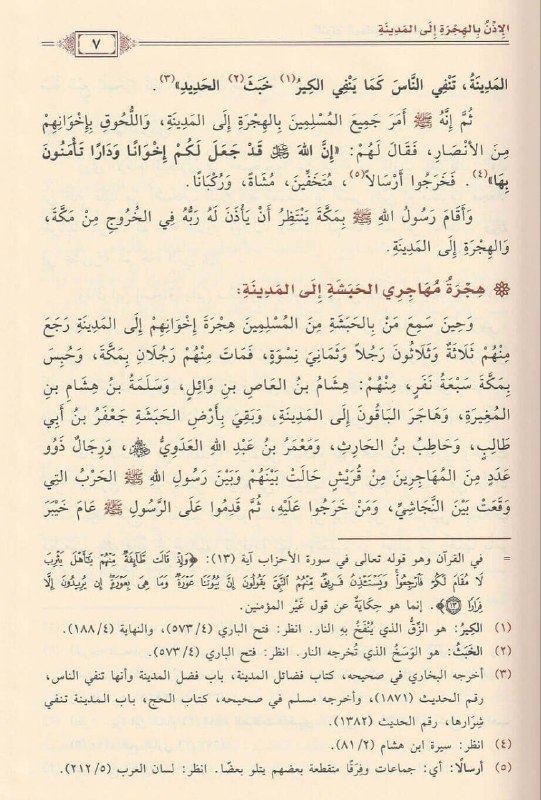 الإِذْنُ بِالهِجْرَةِ إِلَى المَدِينَةِ
٧
المَدِينَةُ، تَنْفِي النَّاسَ كَمَا يَنْفِي الكِيرُ(١) خَبَثَ(٢) الحَدِيدِ»(٣).
ثُمَّ إِنَّهُ ﷺ أَمَرَ جَمِيعَ المُسْلِمِينَ بِالهِجْرَةِ إِلَى المَدِينَةِ، وَاللُّحُوقِ بِإِخْوَانِهِمْ
مِنَ الأَنْصَارِ، فَقَالَ لَهُمْ: «إِنَّ اللهَ ﷻ قَدْ جَعَلَ لَكُمْ إِخْوَانًا وَدَارًا تَأْمَنُونَ
بِهَا»(٤). فَخَرَجُوا أَرْسَالًا(٥)، مُتَخَفِّينَ، مُشَاةً، وَرُكْبَانًا.
وَأَقَامَ رَسُولُ اللهِ ﷺ بِمَكَّةَ يَنْتَظِرُ أَنْ يَأْذَنَ لَهُ رَبُّهُ فِي الخُرُوجِ مِنْ مَكَّةَ،
وَالهِجْرَةِ إِلَى المَدِينَةِ.
هِجْرَةُ مُهَاجِرِي الحَبَشَةِ إِلَى المَدِينَةِ:
وَحِينَ سَمِعَ مَنْ بِالحَبَشَةِ مِنَ المُسْلِمِينَ هِجْرَةَ إِخْوَانِهِمْ إِلَى المَدِينَةِ رَجَعَ
مِنْهُمْ ثَلَاثَةٌ وَثَلَاثُونَ رَجُلًا وَثَمَانِيَ نِسْوَةٍ، فَمَاتَ مِنْهُمْ رَجُلَانِ بِمَكَّةَ، وَحُبِسَ
بِمَكَّةَ سَبْعَةُ نَفَرٍ، مِنْهُمْ: هِشَامُ بنُ العَاصِ بنِ وَائِلٍ، وَسَلَمَةُ بنُ هِشَامِ بنِ
المُغِيرَةِ، وَهَاجَرَ البَاقُونَ إِلَى المَدِينَةِ، وَبَقِيَ بِأَرْضِ الحَبَشَةِ جَعْفَرُ بنُ أَبِي
طَالِبٍ، وَحَاطِبُ بنُ الحَارِثِ، وَمَعْمَرُ بنُ عَبْدِ اللهِ العَدَوِيُّ ﷃ، وَرِجَالٌ ذَوُو
عَدَدٍ مِنَ المُهَاجِرِينَ مِنْ قُرَيْشٍ حَالَتْ بَيْنَهُمْ وَبَيْنَ رَسُولِ اللهِ ﷺ الحَرْبُ التِي
وَقَعَتْ بَيْنَ النَّجَاشِيِّ، وَمَنْ خَرَجُوا عَلَيْهِ، ثُمَّ قَدِمُوا عَلَى الرَّسُولِ ﷺ عَامَ خَيْبَرَ
= في القرآن وهو قوله تعالى في سورة الأحزاب آية (١٣): ﴿وَإِذْ قَالَت طَّآئِفَةٌ مِّنْهُمْ يَٰٓأَهْلَ يَثْرِبَ
لَا مُقَامَ لَكُمْ فَٱرْجِعُوا۟ وَيَسْتَـْٔذِنُ فَرِيقٌ مِّنْهُمُ ٱلنَّبِىَّ يَقُولُونَ إِنَّ بُيُوتَنَا عَوْرَةٌ وَمَا هِىَ بِعَوْرَةٍ إِن يُرِيدُونَ إِلَّا
فِرَارًا ١٣﴾. إنما هو حِكَايَةٌ عن قول غَيْرِ المؤمنين.
(١) الكِيرُ: هو الزِّقُّ الذي يُنْفَخُ بِهِ النار. انظر: فتح الباري (٥٧٣/٤)، والنهاية (١٨٨/٤).
(٢) الخَبَثُ: هو الوَسَخُ الذي تُخرجه النار. انظر: فتح الباري (٥٧٣/٤).
(٣) أخرجه البخاري في صحيحه، كتاب فضائل المدينة، باب فضل المدينة وأنها تنفي الناس،
رقم الحديث (١٨٧١)، وأخرجه مسلم في صحيحه، كتاب الحج، باب المدينة تنفي
شِرَارها، رقم الحديث (١٣٨٢).
(٤) انظر: سيرة ابن هشام (٨١/٢).
(٥) أرسالًا: أي: جماعات وفِرَقًا متقطعة بعضهم يتلو بعضًا. انظر: لسان العرب (٢١٢/٥).